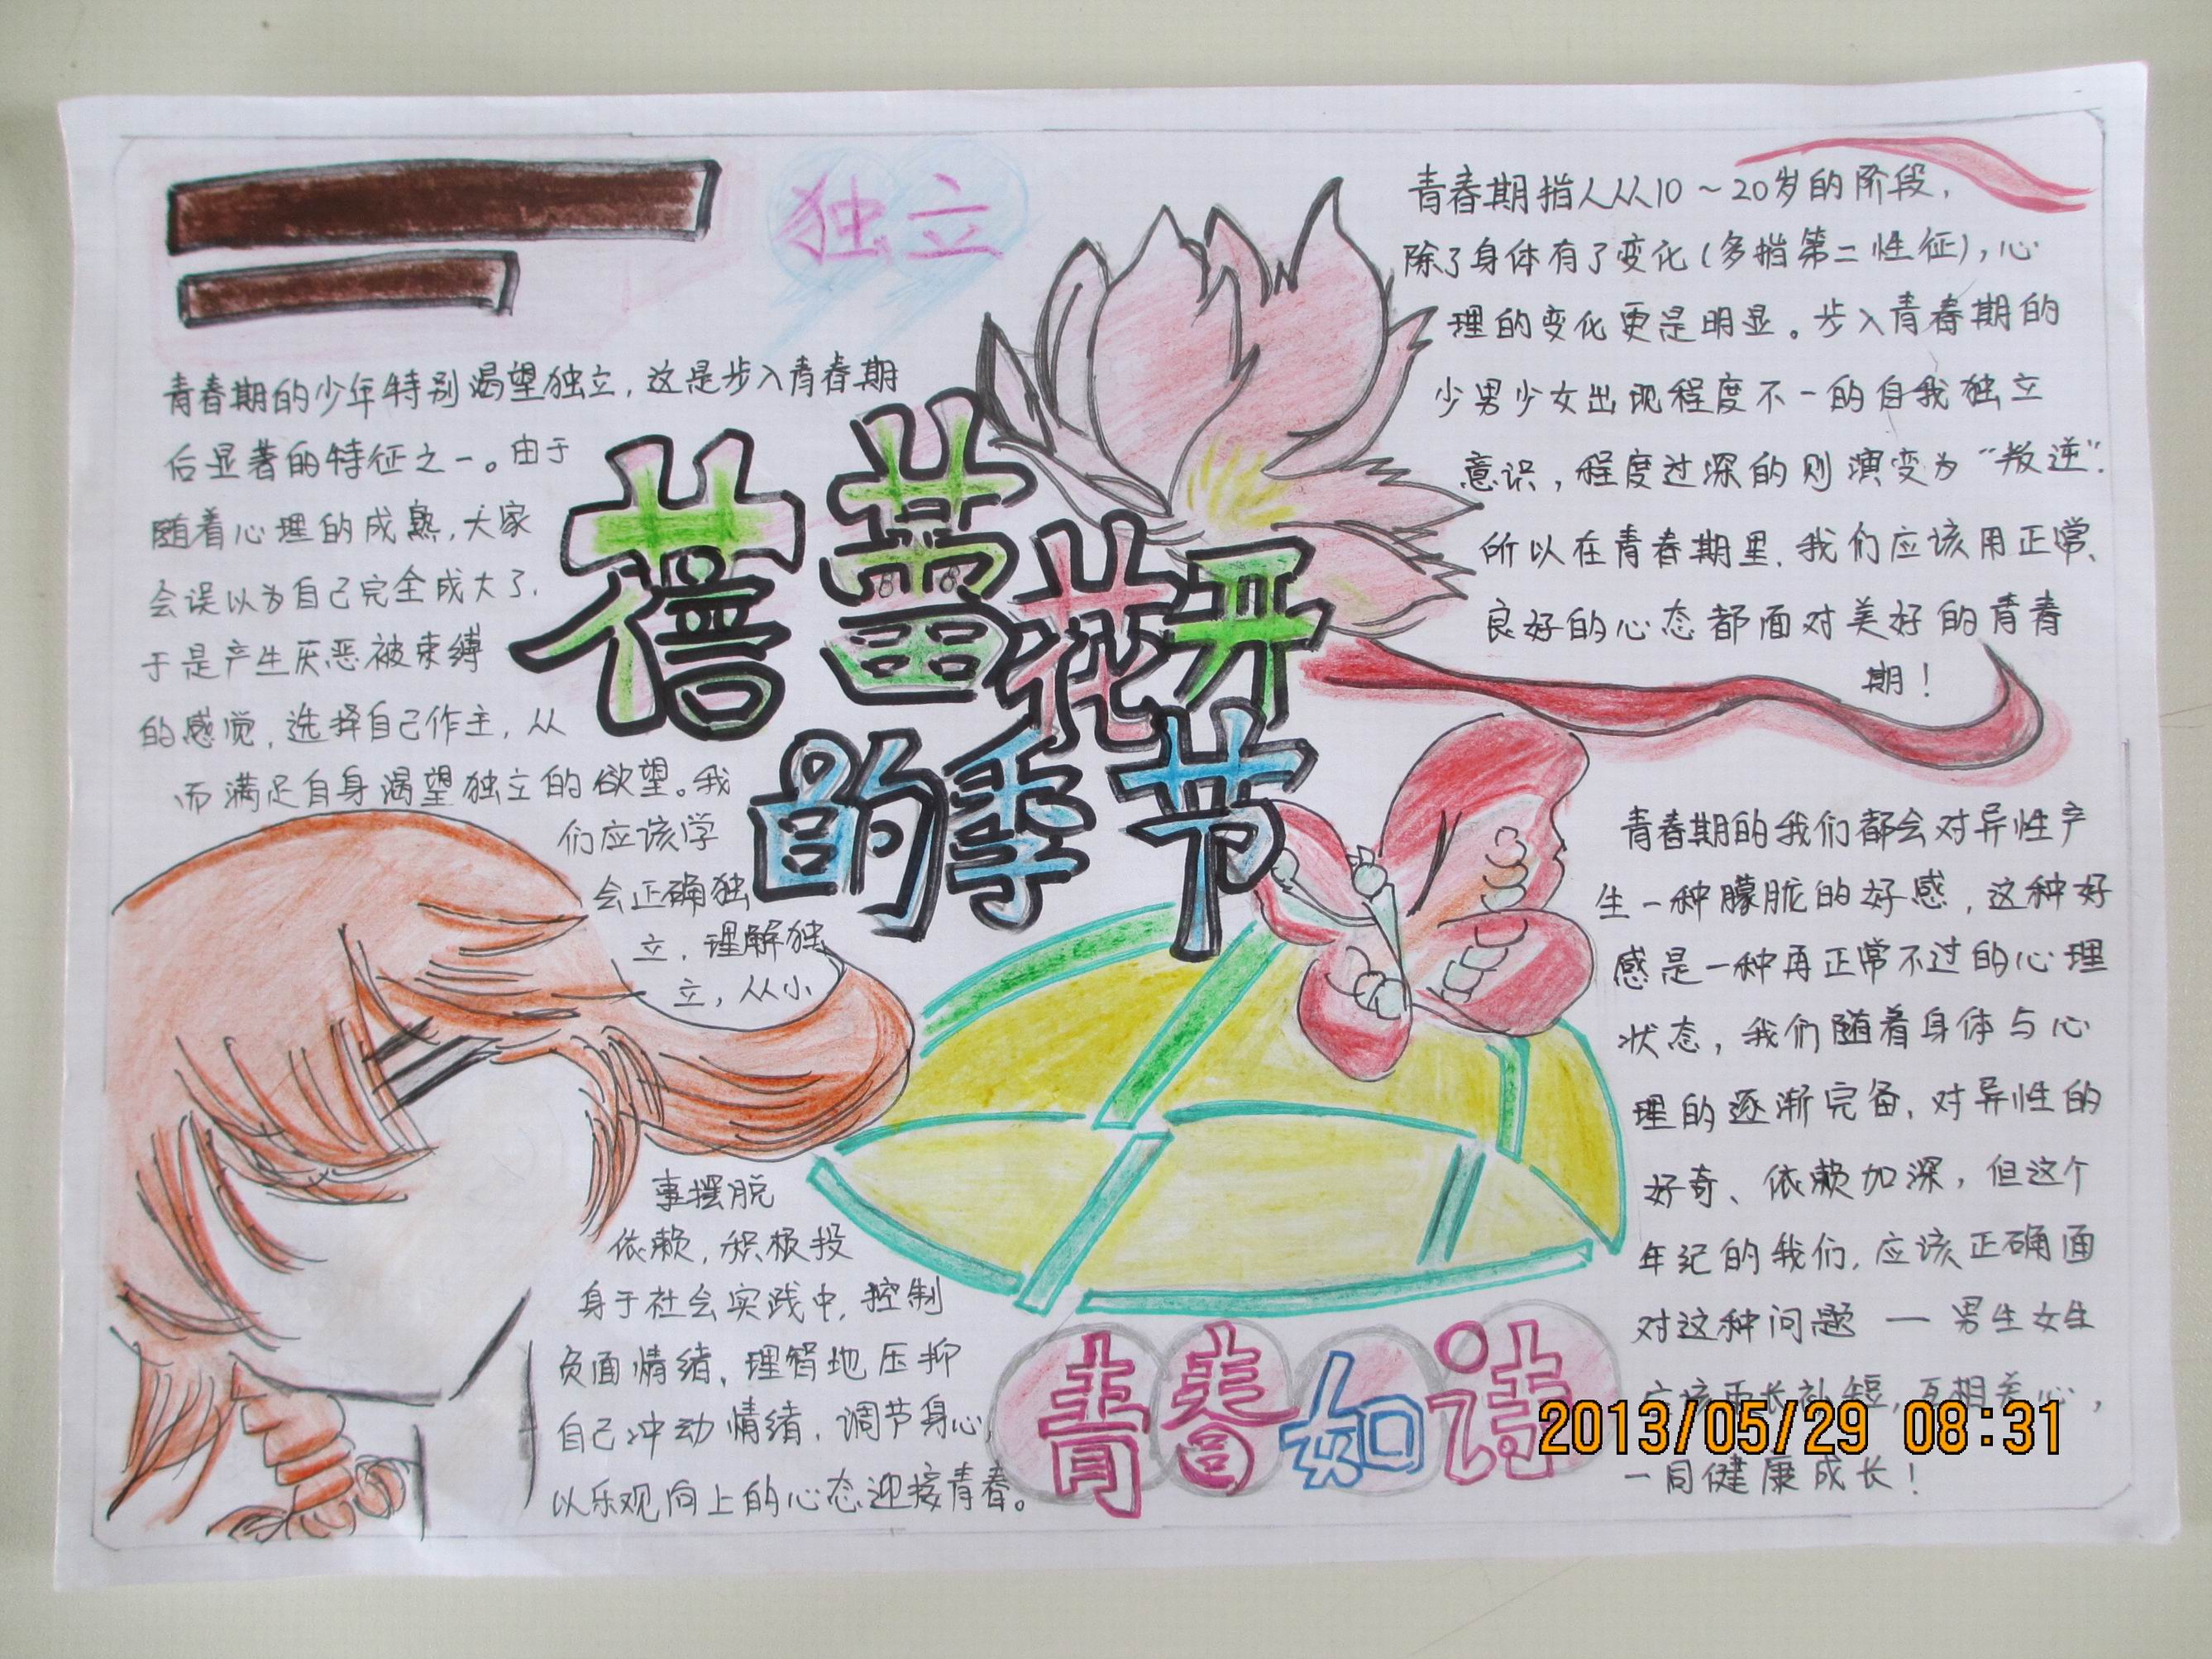 独立
青春期的少年特别渴望独立，这是步入青春期
后显著的特征之一。由于
随着心理的成熟，大家
会误以为自己完全成大了，
于是产生厌恶被束缚
的感觉，选择自己作主，从
而满足自身渴望独立的欲望。我
们应该学
会正确独
立，理解独
立，从小
事摆脱
依赖，积极投
身于社会实践中，控制
负面情绪，理智地压抑
自己冲动情绪，调节身心，
以乐观向上的心态迎接青春。
蓓蕾花开
的季节
青春如诗
青春期指人从10～20岁的阶段，
除了身体有了变化（多指第二性征），心
理的变化更是明显。步入青春期的
少男少女出现程度不一的自我独立
意识，程度过深的则演变为“叛逆”.
所以在青春期里，我们应该用正常、
良好的心态都面对美好的青春
期！
青春期的我们都会对异性产
生一种朦胧的好感，这种好
感是一种再正常不过的心理
状态，我们随着身体与心
理的逐渐完备，对异性的
好奇、依赖加深，但这个
年纪的我们，应该正确面
对这种问题 — 男生女生
应该取长补短，互相关心，
一同健康成长！
2013/05/29 08:31